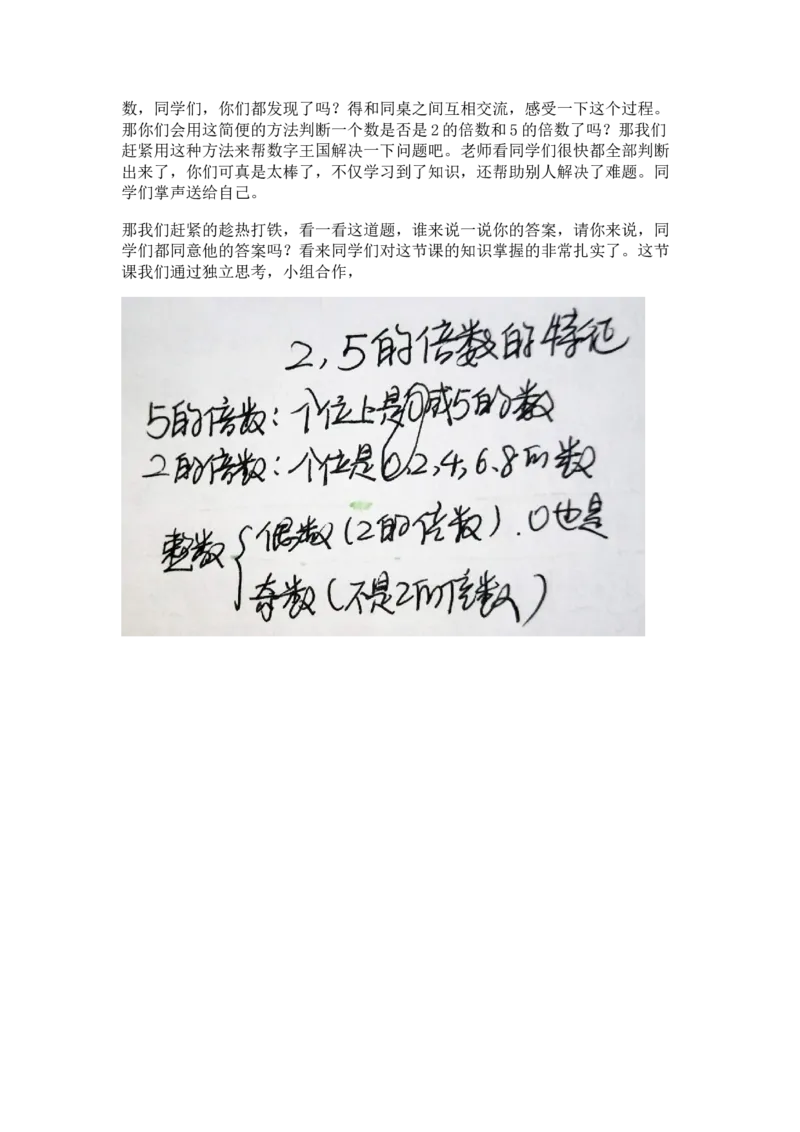 数，同学们，你们都发现了吗？得和同桌之间互相交流，感受一下这个过程。
那你们会用这简便的方法判断一个数是否是 2 的倍数和 5 的倍数了吗？那我们
赶紧用这种方法来帮数字王国解决一下问题吧。老师看同学们很快都全部判断
出来了，你们可真是太棒了，不仅学习到了知识，还帮助别人解决了难题。同
学们掌声送给自己。
那我们赶紧的趁热打铁，看一看这道题，谁来说一说你的答案，请你来说，同
学们都同意他的答案吗？看来同学们对这节课的知识掌握的非常扎实了。这节
课我们通过独立思考，小组合作，
2，5的倍数的特征
5的倍数：个位上是0或5的数
2的倍数：个位是0、2、4、6、8的数
整数{偶数（2的倍数）．0也是
奇数（不是2的倍数）